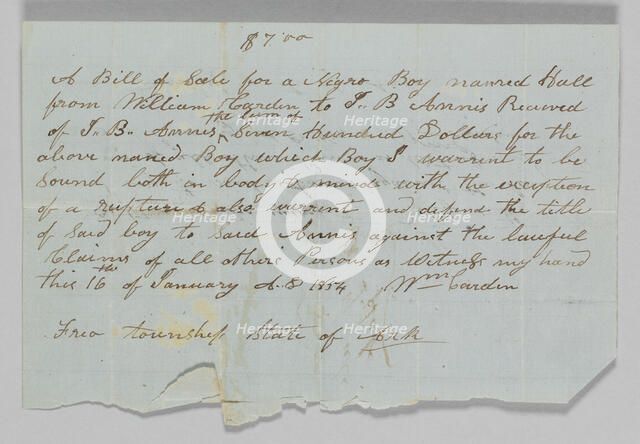 $700
A Bill of Sale for a Negro Boy named Hall
from William Carden to J. B. Annis Received
the sum of
of J. B. Annis ^ Seven Hundred Dollars for the
above named Boy which Boy I warrent to be
Sound both in body & minde with the exception
of a rupture & also warrent and defend the title
of said boy to said Annis against the lawful
Claims of all others Persons as Witness my hand
this 16th of January A. D 1854 Wm Carden
Freo township State of Ark
Heritage Images
Heritage Images
Heritage Images
Heritage Images
Heritage Images
©